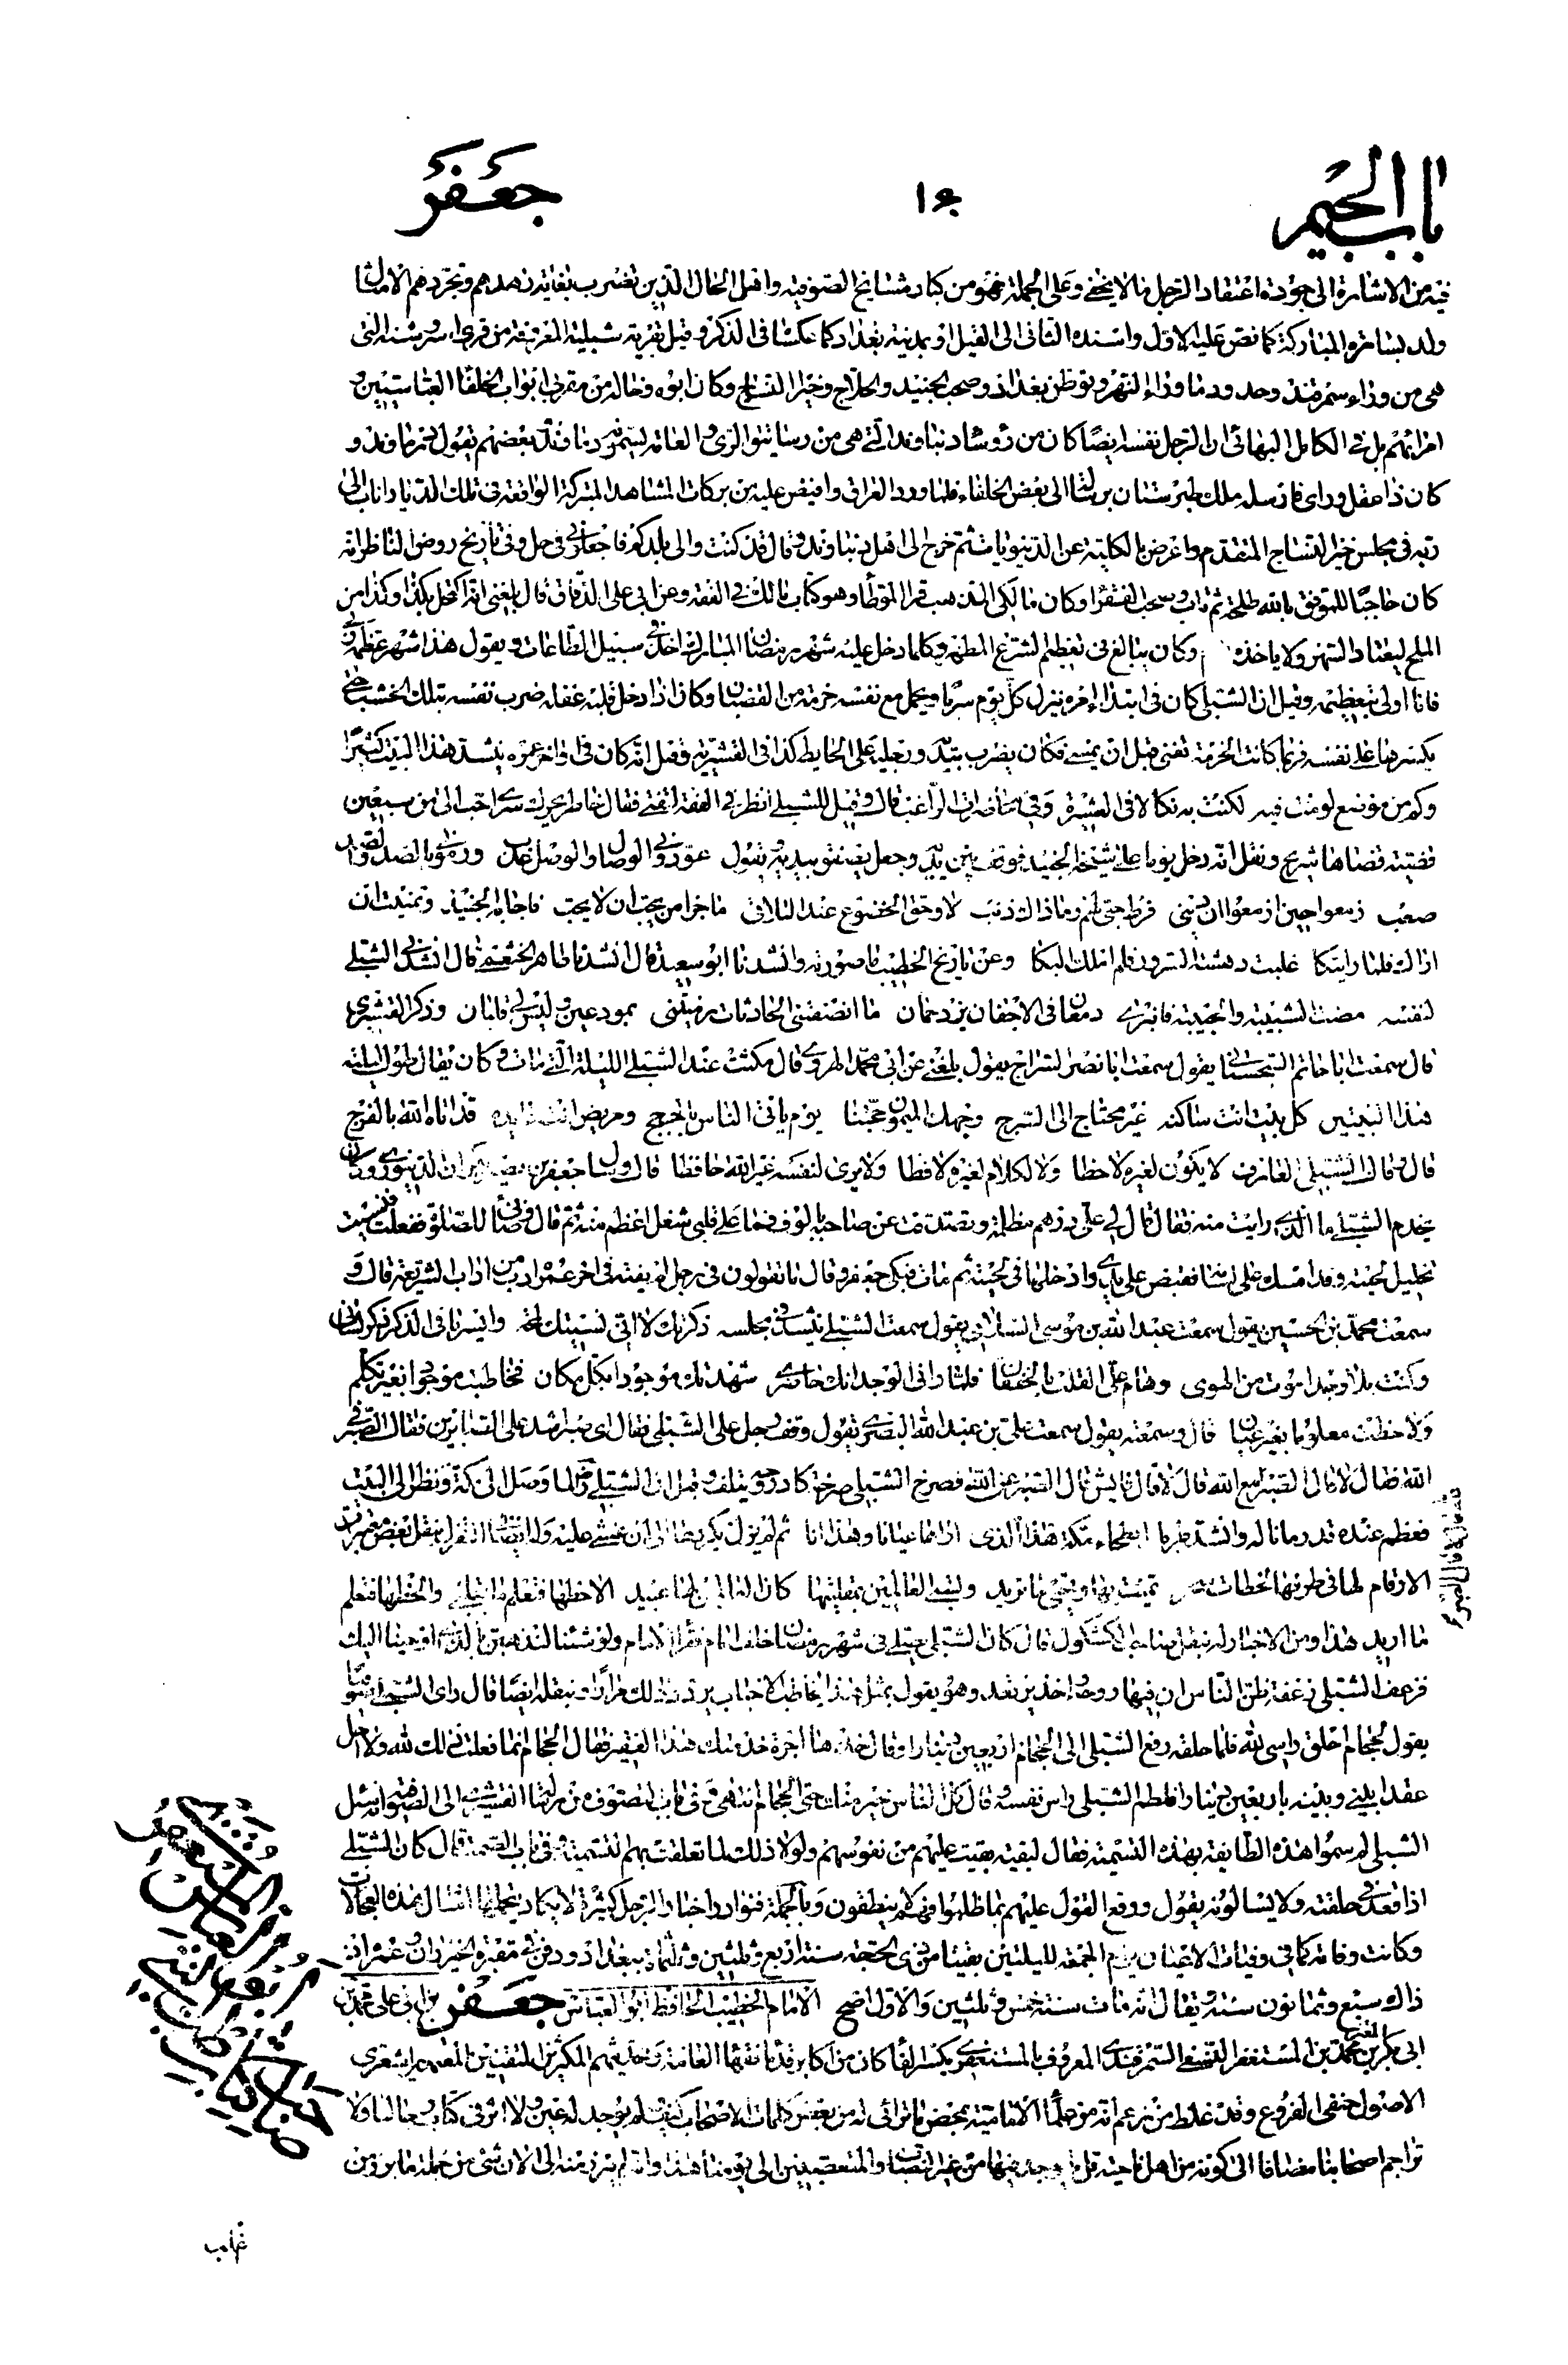 باب الجيم
جعفر
فيه من الاشارة الى جودة اعتقاد الرجل ما لا يخفى وعلى الجملة فهو من كبار مشايخ الصوفية واهل الحال الذين تضرب بغاية زهدهم وتجردهم الامثال
ولد بسامره المباركة كما نص عليه الاول واسنده الثانى الى القيل او بمدينة بغداد كما عكسا فى الذكر وقيل بقرية شبلية المعروفة من قرى اسروشنه التى
هى من وراء سمرقند وحدود ما وراء النهر وتوطن بغداد وصحب الجنيد والحلاج وخير النساج وكان ابوه وخاله من مقربى ابواب الخلفاء العباسيين و
امرائهم بل فى الكامل البهائى ان الرجل نفسه ايضا كان من رؤساء دنباوند التى هى من رساتيق الرى والعامة يسمونه دماوند بعضهم يقول دماوند و
كان ذا عقل وراى فارسله ملك طبرستان برسالة الى بعض الخلفاء فلما ورد العراق وافيض عليه من بركات المشاهد المتبركة الواقعة فى تلك الديار اناب الى
ربه فى مجلس خير النساج المتقدم واعرض بالكلية عن الدنيويات ثم خرج الى اهل دنباوند وقال قد كنت والى بلدكم فاجعلونى فى حل وفى تاريخ روض المناظر انه
كان حاجبا للموفق بالله طلحة ثم تاب وصحب الفقراء وكان مالكى المذهب قرا الموطأ وهو كتاب مالك فى الفقه وعن ابى على الدقاق قال بلغنى انه اكتحل بكذا وكذا من
الملح ليعتاد السهر ولا ياخذه وكان يبالغ فى تعظيم الشرع المطهر وكلما دخل عليه شهر رمضان المبارك اخذ فى سبيل الطاعات ويقول هذا شهر عظمه ربى
فانا اولى بتعظيمه وقيل ان الشبلى كان فى ابتداء امره ينزل كل يوم سربا ويحمل مع نفسه حزمة من القضبان وكان اذا دخل قلبه غفلة ضرب نفسه بتلك الخشب حتى
يكسرها على نفسه فربما كانت الحزمة تفنى قبل ان يمسى فكان يضرب بيديه ورجليه على الحايط كذا فى القشيرية وقيل انه كان فى اواخر عمره ينشد هذا البيت كثيرا
وكم من موضع لو مت فيه لكنت به نكالا فى العشيرة وفى محاضرات الراغب قال وقيل للشبلى انظر فى الفقه فقال خاطر يحرك سرى احب الى من سبعين
قضية قضاها شريح ونقل انه دخل يوما على شيخه الجنيد فوقف بين يديه وجعل يصفق بيديه ويقول عودونى الوصال والوصل عذب ورمونى بالصد والصد
صعب زعموا حين ازمعوا ان ذنبى فرط حبى لهم وما ذاك ذنب لا وحق الخضوع عند التلاقى ما جزا من يحب ان لا يحب فاجابه الجنيد وتمنيت ان
اراك فلما رايتكا غلبت دهشة السرور فلم املك البكا وعن تاريخ الخطيب ما صورته وانشدنا ابو سعيد قال انشدنا طاهر الخثعمى قال انشدنى الشبلى
لنفسه مضت الشبيبة والحبيبة فانبرى دمعان فى الاجفان يزدحمان ما انصفتنى الحادثات رمتنى بمودعين وليس لى قلبان وذكر القشيرى
قال سمعت ابا حاتم السجستانى يقول سمعت ابا نصر السراج يقول بلغنى عن ابى محمد الهروى قال مكثت عند الشبلى الليلة التى مات فيها كان يقال طول ليلته
هذا البيتين كل بيت انت ساكنه غير محتاج الى السرج وجهك الميمون حجتنا يوم ياتى الناس بالحجج ومريض انت قد اتاه الله بالفرج
قال وقال الشبلى العارف لا يكون لغيره لاحظا ولا لكلام لغيره لافظا ولا يرى لنفسه غير الله حافظا قال وسال جعفر بن نصير بكران الدينورى وكان
يخدم الشبلى ما الذى رايت منه فقال قال لى على درهم مظلمة وتصدقت عن صاحبه بالوف فما على قلبى شغل اعظم منه ثم قال وضئنى للصلوة ففعلت فنسيت
تخليل لحيته وقد امسك على لسانه فقبض على يدى وادخلها فى لحيته ثم مات فبكى جعفر وقال ما تقولون فى رجل لم يفته فى اخر عمره ادب من اداب الشريعة قال و
سمعت محمد بن الحسين يقول سمعت عبد الله بن موسى السلامى يقول سمعت الشبلى ينشد فى مجلسه ذكرتك لا انى نسيتك لمحة وايسر ما فى الذكر ذكر لسانى
وكنت بلا وجد اموت من الهوى وهام على القلب بالخفقان فلما رانى الوجد انك حاضرى شهدتك موجودا بكل مكان فخاطبت موجودا بغير تكلم
ولاحظت معلوما بغير عيان قال وسمعته يقول سمعت على بن عبد الله البصرى يقول وقف رجل على الشبلى فقال اى صبر اشد على الصابرين فقال الصبر فى
الله فقال لا قال الصبر مع الله قال لا قال فايش قال الصبر عن الله فصرخ الشبلى صرخة كاد روحه يتلف وقيل ان الشبلى لما وصل الى مكة ونظر الى البيت
فعظم عنده قدر ما ناله وانشد طربا ابطحاء مكة هذا الذى اراه عيانا وهذا انا ثم لم يزل يكررها الى ان غشى عليه
ما اريد هذا ومن الاخبار له بنقل صاحب الكشكول قال كان الشبلى يصلى فى شهر رمضان خلف امام فقرا الامام ولئن شئنا لنذهبن بالذى اوحينا اليك
فزعق الشبلى زعقة ظن الناس ان فيها روحه واخذ يرتعد وهو يقول بمثل هذا يخاطب الاحباب يردد ذلك مرارا وبنقله ايضا قال راى الشبلى صوفيا
يقول لحجام احلق راسى لله فلما حلقه دفع الشبلى الى الحجام اربعين دينارا وقال خذها اجرة خدمتك هذا الفقير فقال الحجام انما فعلت ذلك لله ولا احل
عقدا بينى وبينه باربعين دينارا فلطم الشبلى راس نفسه وقال كل الناس خير منك حتى الحجام انتهى وفى باب التصوف من رسالة القشيرى
الشبلى لم سموا هذه الطايفة بهذه التسمية فقال لبقية بقيت عليهم من نفوسهم ولولا ذلك لما تعلقت بهم التسمية وفى باب الصمت قال كان الشبلى
اذا قعد فى حلقته ولا يسالونه يقول ووقع القول عليهم بما ظلموا فهم لا ينطقون وبالجملة فنوادر واخبار الرجل كثيرة لا يكاد يتحملها امثال هذه العجالات
وكانت وفاته كما فى وفيات الاعيان يوم الجمعة لليلتين بقيتا من ذى الحجة سنة اربع وثلثين وثلثمائة ببغداد ودفن فى مقبرة الخيزران وعمره اذ
ذاك سبع وثمانون سنة ويقال انه مات سنة خمس وثلثين والاول اصح الامام الخطيب الحافظ ابو العباس جعفر بن ابى على محمد بن
ابى بكر بن محمد بن المستغفر النسفى السمرقندى المعروف بالمستغفرى بكسر الفاء كان من اكابر فقهاء العامة ومحدثيهم المكثرين المتقنين اشعرى
الاصول حنفى الفروع وقد غلط من زعم انه من علماء الامامية بمحض ما ترائى له من بعض كلمات الاصحاب كيف ولم يوجد له عين ولا اثر فى كتاب رجالنا ولا
تراجم اصحابنا مضافا الى كونه من اهل ناحية قل ما وجد فيها من غير النصاب والمتعصبين الى يومنا هذا وانه لم يبرز منه الى الان شىء من جملة ما برز من
غراب